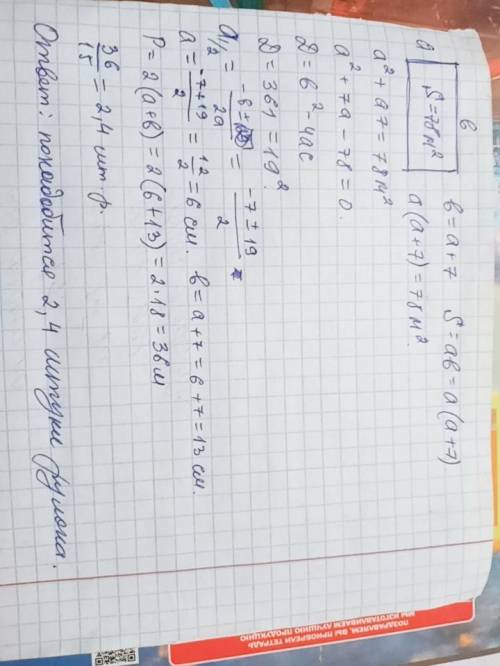 в
a S=78м²
b = a+7 S = ab = a(a+7)
a(a+7) = 78м².
a² + a7 = 78м²
a² + 7a - 78 = 0.
D = b² - 4ac
D = 361 = 19².
a1/2 = -b ± / 2a = -7 ± 19 / 2
a = -7+19 / 2 = 12 / 2 = 6 см. b = a+7 = 6+7 = 13 см.
P = 2(a+b) = 2(6+13) = 2·18 = 36м
36 / 15 = 2,4 шт. р.
Ответ: понадобится 2,4 штуки рулона.
ПОЗДРАВЛЯЕМ, ВЫ ПРИОБРЕЛИ ТЕТРАДЬ
МЫ ИЗГОТАВЛИВАЕМ ЛУЧШУЮ ПРОДУКЦИЮ